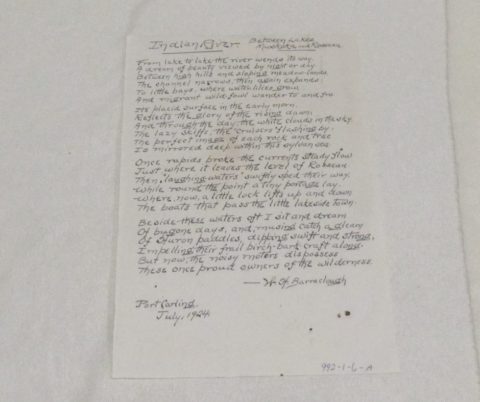 Indian River. Between Lakes
Muskoka and Rosseau
From lake to lake the river wends its way.
A dream of beauty viewed by night or day
Between high hills and sloping meadow lands,
The channel narrows, then again expands,
To little bays, where waterlilies grow
And migrant wild fowl wander to and fro.
Its placid surface in the early morn,
Reflects the glory of the rising dawn;
And through the day the white clouds in the sky,
The lazy skiffs, the cruisers flashing by.
The perfect image of each rock and tree
Is mirrored deep within this sylvan sea.
Once rapids broke the currents steady flow
Just where it leaves the level of Rosseau
Then, laughing waters swiftly sped their way,
While round the point a tiny portage lay.
Where, now, a little lock lifts up and down
The boats that pass the little lakeside town.
Beside these waters oft I sit and dream
Of bygone days, and, musing catch a gleam
Of Huron paddles, dipping swift and strong,
Impelling their frail birch-bark craft along.
But now, the noisy motors dispossess
These once proud owners of the wilderness.
Barraclough
Port Carling.
July, 1924.
992-1-6-A